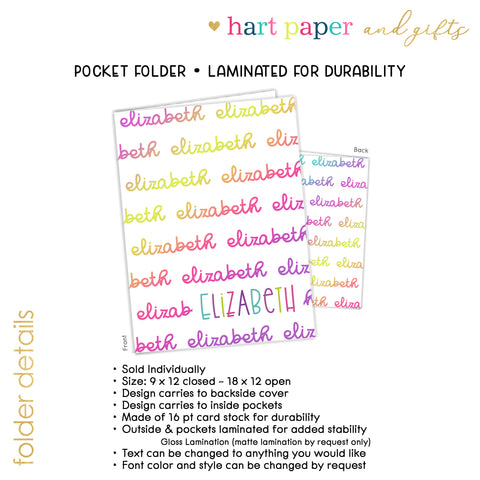 hart paper and gifts
POCKET FOLDER • LAMINATED FOR DURABILITY
elizabeth elizabeth
beth elizabeth elizabeth
elizabeth elizabeth
beth elizabeth elizabeth
elizabeth elizabeth
beth elizabeth elizabeth
elizab ELIZABETH
beth elizabeth eliz
Front
Back
elizabeth
abeth eliza
elizabeth
beth eliza
elizabeth
beth eliza
elizabeth
beth eliza
folder details
• Sold Individually
• Size: 9 x 12 closed - 18 x 12 open
• Design carries to backside cover
• Design carries to inside pockets
• Made of 16 pt card stock for durability
• Outside & pockets laminated for added stability
Gloss Lamination (matte lamination by request only)
• Text can be changed to anything you would like
• Font color and style can be changed by request